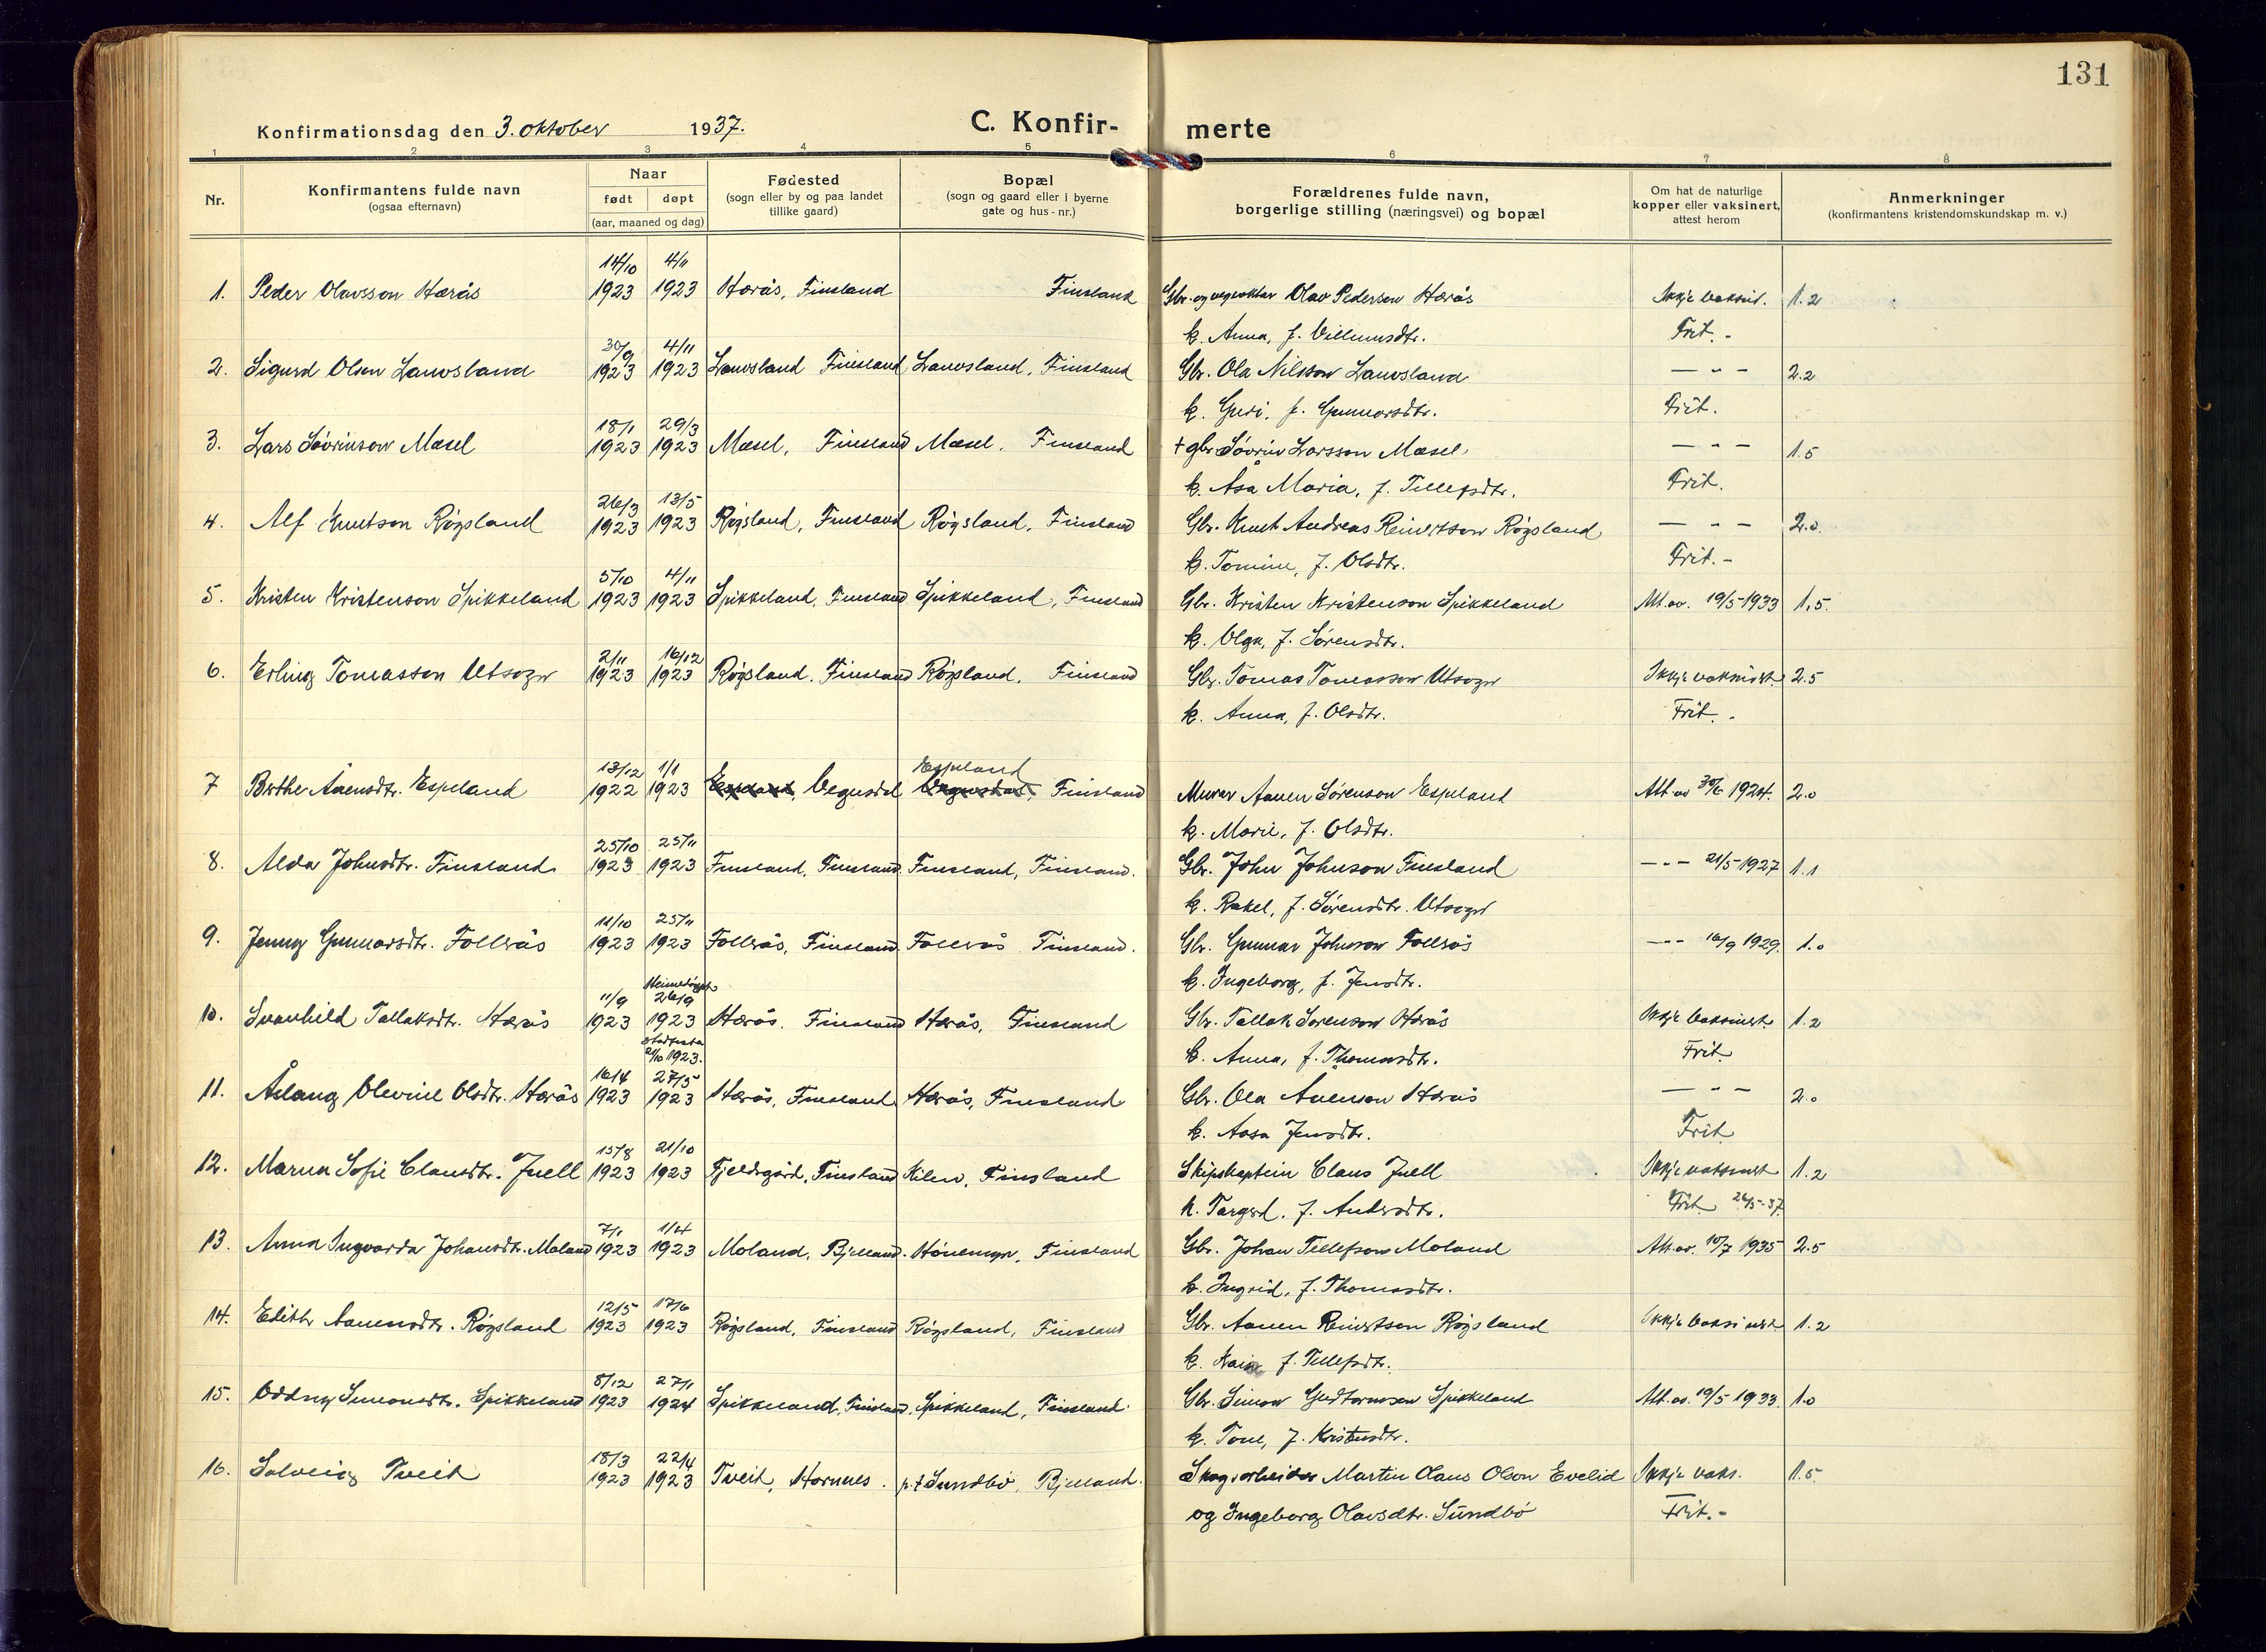 131
Konfirmationsdag den 3. oktober 1937.
C. Konfir- merte
1 2 3 4 5 6 7 8
Nr.
Konfirmantens fulde navn
(ogsaa efternavn)
Naar
født døpt
(aar, maaned og dag)
Fødested
(sogn eller by og paa landet
tillike gaard)
Bopæl
(sogn og gaard eller i byerne
gate og hus-nr.)
Forældrenes fulde navn,
borgerlige stilling (næringsvei) og bopæl
Om hat de naturlige
kopper eller vaksinert,
attest herom
Anmerkninger
(konfirmantens kristendomskundskap m. v.)
14/10 4/11
1. Peder Olavsson Hærås 1923 1923 Hærås, Finsland Finsland Gbr. og vegvoktar Olav Pederson Hærås Ikkje vaksin. 1.2
k. Anna, f. Villumsdtr. Frit. -
30/9 4/11
2. Sigurd Olsen Lauvsland 1923 1923 Lauvsland Finsland Lauvsland, Finsland Gbr. Ola Nilsson Lauvsland — " — 2.2
k. Guri, f. Gunnarsdtr. Frit.
18/1 29/3
3. Lars Søvrinson Mæsel 1923 1923 Mæsel, Finsland Mæsel, Finsland + gbr Søvrin Larsson Mæsel — " — 1.5
k. Åsa Maria, f. Tellefsdtr. Frit.
26/3 13/5
4. Alf Knutson Røysland 1923 1923 Røysland, Finsland Røysland, Finsland Gbr. Knut Andreas Reinertson Røysland — " — 2.0
k. Tomine, f. Olsdtr. Frit. -
5/10 4/11
5. Kristen Kristenson Spikkeland 1923 1923 Spikkeland, Finsland Spikkeland, Finsland Gbr. Kristen Kristenson Spikkeland Att. av. 19/5 1933 1,5.
k. Olga, f. Sørensdtr.
2/11 16/12
6. Erling Tomasson Utsogn 1923 1923 Røysland, Finsland Røysland, Finsland Gbr. Tomas Tomasson Utsogn Ikkje vaksinert. 2.5
k. Anna, f. Olsdtr. Frit. -
13/12 1/1 Espeland
7 Berthe Åvensdtr. Espeland 1922 1923 Espeland, Vegusdal Vegusdal, Finsland Murar Aanen Sørenson Espeland Att. av 30/6 1924. 2.0
k. Marie, f. Olsdtr.
25/10 25/11
8. Alda Johnsdtr. Finsland 1923 1923 Finsland, Finsland Finsland, Finsland. Gbr. John Johnson Finsland — " — 21/5 1927 1.1
k. Rakel, f. Sørensdtr. Utsogn
11/10 25/11
9. Jenny Gunnarsdtr. Follerås 1923 1923 Follerås, Finsland Follerås Finsland. Gbr. Gunnar Johnson Follerås — " — 16/9 1929. 1.0
k. Ingeborg, f. Jensdtr.
Heimedøypt
11/9 26/9
10. Svanhild Tallaksdtr. Hærås 1923 1923 Hærås, Finsland Hærås, Finsland Gbr. Tallak Sørenson Hærås Ikkje vaksinert 1.2
stadfesta
21/10 1923. k. Anna, f. Thomasdtr. Frit
16/4 27/5
11. Åslaug Olevine Olsdtr. Hærås 1923 1923 Hærås, Finsland Hærås, Finsland Gbr. Ola Aanenson Hærås — " — 2.0
k. Aasa Jensdtr. Frit
15/8 21/10
12. Marna Sofie Clausdtr. Juell 1923 1923 Fjeldsgård, Finsland Kilen, Finsland Skipskaptein Claus Juell Ikkje vaksinert 1.2
k. Targerd. f. Andersdtr. Frit 26/5-37
7/1 1/4
13. Anna Ingvarda Johansdtr. Moland 1923 1923 Moland, Bjelland. Hønemyr, Finsland Gbr. Johan Tellefson Moland Att. av. 10/7 1935 2.5
k. Ingrid, f. Thomasdtr.
12/5 17/6
14. Edith Aanensdtr. Røysland 1923 1923 Røysland, Finsland Røysland, Finsland Gbr. Aanen Reinertson Røysland Ikkje vaksinert 1.2
k. Kaia f. Tellefsdtr.
8/12 27/1
15. Oddny Simonsdtr. Spikkeland 1923 1924 Spikkeland, Finsland, Spikkeland, Finsland Gbr. Simon Gudtormson Spikkeland Att. av. 19/5 1933. 1.0
k. Tone, f. Kristensdtr.
18/3 22/4
16. Solveig Tveit 1923 1923 Tveit, Hornnes. p.t. Sundbø, Bjelland. Skogsarbeider Martin Olaus Olson Evelid Ikkje vaks. 1.5
og Ingeborg Olavsdtr. Sundbø Frit. -